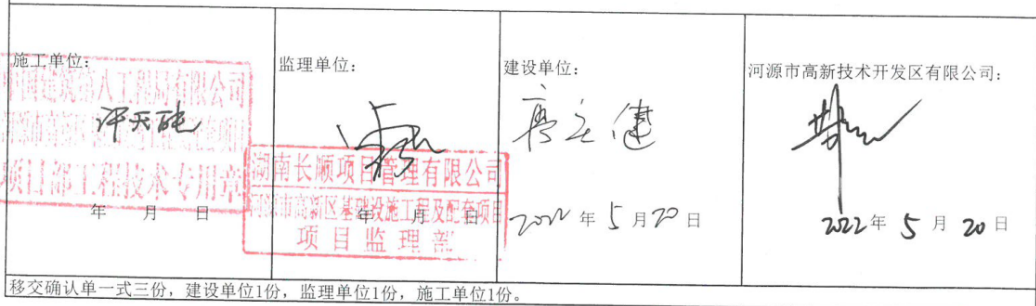 施工单位：
中国建筑第八工程局有限公司
项目部工程技术专用章
年 月 日
监理单位：
湖南长顺项目管理有限公司
河源市高新区基础设施工程及配套项目
项目监理部
年 月 日
建设单位：
2022 年 5 月 20 日
河源市高新技术开发区有限公司：
2022 年 5 月 20 日
移交确认单一式三份，建设单位1份，监理单位1份，施工单位1份。